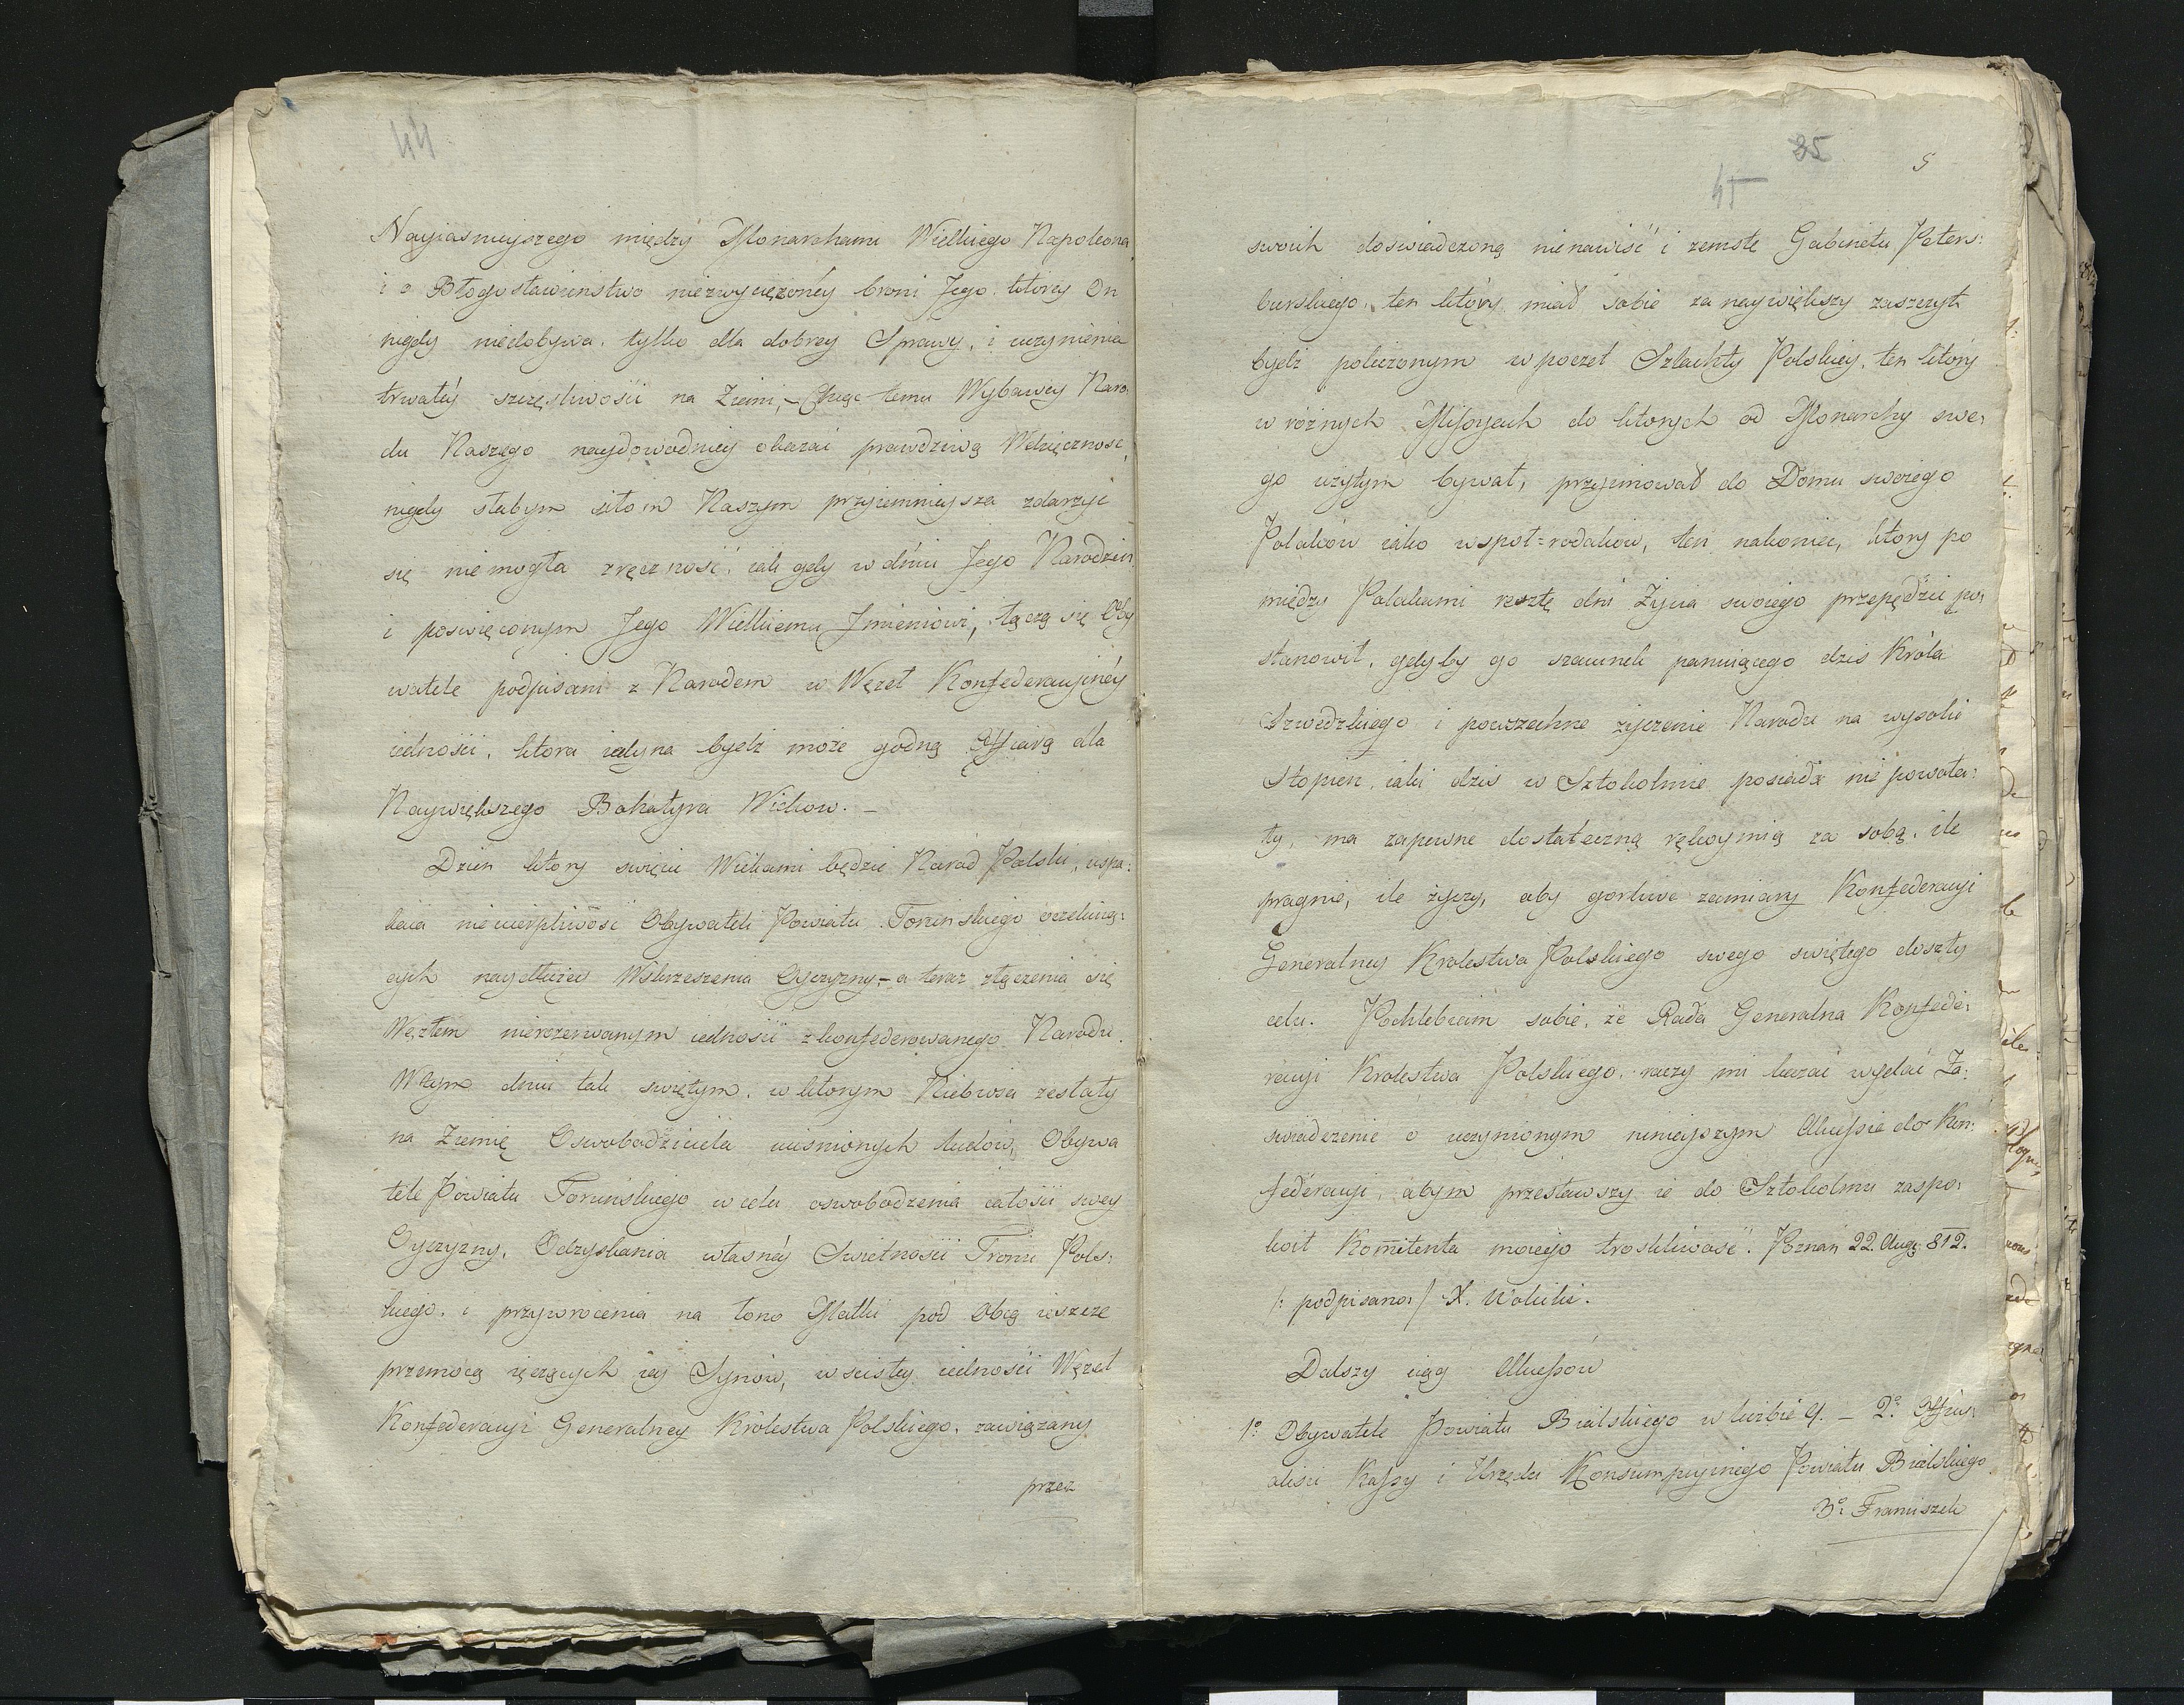 44
Nayiasnieyszego między Monarchami Wielkiego Napoleona
i o Błogosławienstwo niezwyciężoney broni Jego którey On
nigdy niedobywa, tylko dla dobrey Sprawy, i uczynienia
trwałey szczęsliwości na Ziemi, – Chcąc temu Wybawcy Naro,
du Naszego naydowodniey okazać prawdziwą Wdzięczność,
nigdy słabym siłom Naszym przyiemnieysza zdarzyć
się niemogła zręczność, iak gdy w dniu Jego Narodzin
i poswięconym Jego Wielkiemu Jmieniowi, łączą się Oby
watele podpisani z Narodem w Węzeł Konfederacyiney
iedności, która iedyna bydź może godną Ofiarą dla
Naywiększego Bohatyra Wieków. –
Dzien który swięcić Wiekami będzie Naród Polski, uspa:
kaia niecierpliwość Obywateli Powiatu Torunskiego oczekuią:
cych naydłużey Wskrzeszenia Oyczyzny, – a teraz złączenia się
Węzłem nierozerwanym iedności zkonfederowanego Narodu.
W tym dniu tak swiętym, w którym Niebiosa zesłały
na Ziemię Oswobodziciela ucisnionych ludów, Obywa
tele Powiatu Toruńskiego w celu oswobodzenia całości swey
Oyczyzny, Odzyskania własney Swietności Tronu Pols:
kiego, i przywrocenia na łono Matki pod obcą ieszcze
przemocą ięczących iey Synów, w scisłey iedności Węzeł
Konfederacyi Generalney Królestwa Polskiego, zawiązany
przez
35
45
5
swoich doswiadczoną nienawiść i zemstę Gabinetu Peters:
burskiego, ten który miał sobie za naywiększy zaszczyt
bydź policzonym w poczet Szlachty Polskiey, ten który
w różnych Missyach do których od Monarchy swe,
go użytym bywał, przyimował do Domu swoiego
Polaków iako wspoł=rodaków, ten nakoniec, który po
między Polakami resztę dni Życia swoiego przepędzić po,
stanowił, gdyby go szacunek panuiącego dziś Króla
Szwedzkiego i powszechne życzenie Narodu na wysoki
Stopień, iaki dziś w Sztokolmie posiada nie powoła:
ły, ma zapewne dostateczną rękoymią za sobą, ile
pragnie, ile życzy, aby gorliwe zamiary Konfederacyi
Generalney Krolestwa Polskiego swego swiętego doszły
celu. Pochlebiam sobie, że Rada Generalna Konfede,
racyi Krolestwa Polskiego, raczy mi kazać wydać Za:
swiadczenie o uczynionym ninieyszym Akcessie do Kon:
federacyi, abym przesławszy ie do Sztokolmu zaspo,
koił Kom̄itenta moiego troskliwość. Poznań 22. Aug: 812.
/: podpisano:/ X. Wolicki.
Dalszy ciąg Akcessów
1o Obywatele Powiatu Bialskiego w liczbie 9. – 2o: Officy,
aliści Kassy i Urzędu Konsumpcyinego Powiatu Bialskiego
3o: Franciszek